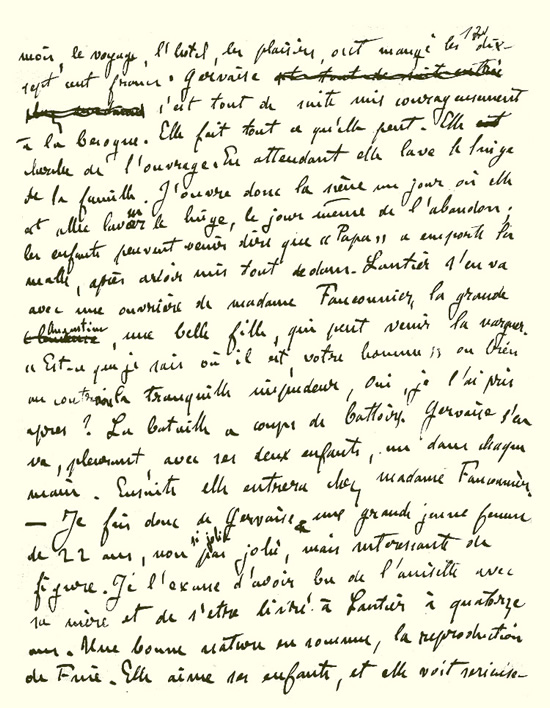 mois, le voyage, l'hôtel, les plaisirs, ont mangé les dix-
sept cent francs. Gervaise
s'est tout de suite mis courageusement
à la besogne. Elle fait tout ce qu'elle peut. Elle
cherche de l'ouvrage. En attendant elle lave le linge
de la famille. J'ouvre donc la scène un jour où elle
est allée laver le linge, le jour même de l'abandon.
les enfants peuvent venir dire que "Papa" a emporté la
malle, après avoir mis tout dedans. Lantier s'en va
avec une ouvrière de madame Fauconnier, la grande
Augustine, une belle fille, qui peut venir la narguer.
"Est-ce que je sais où il est, votre homme" ou bien
au contraire la tranquille impudeur, Oui, je l'ai pris
après ? La bataille à coups de battoirs. Gervaise s'en
va, pleurant, avec ses deux enfants, un dans chaque
main. Ensuite elle entrera chez madame Fauconnier.
— Je fais donc de Gervaise une grande jeune femme
de 22 ans, non pas si jolie, mais intéressante de
figure. Je l'excuse d'avoir bu de l'anisette avec
sa mère et de s'être livrée à Lantier à quatorze
ans. Une bonne nature en somme, la reproduction
de Fine. Elle aime ses enfants, et elle voit sérieuse-